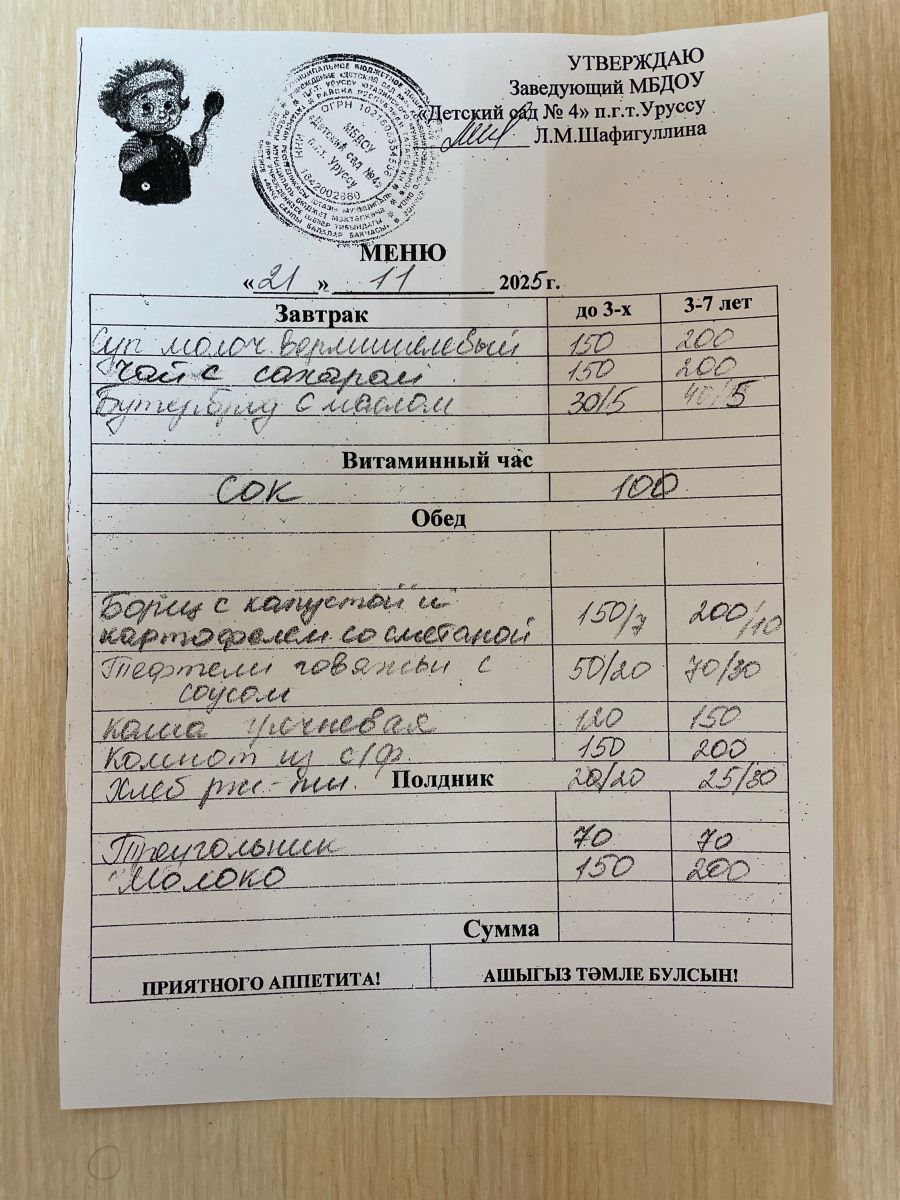 УТВЕРЖДАЮ
Заведующий МБДОУ
«Детский сад № 4» п.г.т.Уруссу
Л.М.Шафигуллина
ОГРН
МБДОУ
«Детский сад №4»
п.г.т. Уруссу
ИНН 1642002980
МЕНЮ
«21» 11 2025г.
Завтрак до 3-х 3-7 лет
Суп молоч. вермишелевый 150 200
Чай с сахаром 150 200
Бутерброд с маслом 30/5 40/5
Витаминный час
Сок 100
Обед
Борщ с капустой и
картофелем со сметаной 150/7 200/10
Тефтели говяжьи с 50/20 70/30
соусом
Каша гречневая 120 150
Компот из с/ф 150 200
Хлеб рж-пш. Полдник 20/20 25/30
Треугольник 70 70
Молоко 150 200
Сумма
ПРИЯТНОГО АППЕТИТА! АШЫГЫЗ ТӘМЛЕ БУЛСЫН!